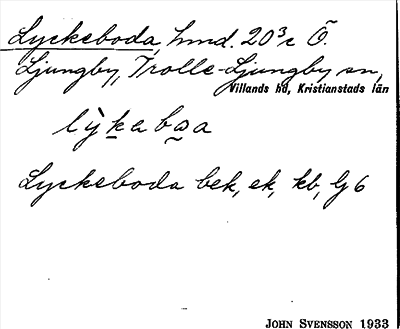 Lyckeboda, hmd. 20³c Ö.
Ljungby, Trolle-Ljungby sn,
Villands hd, Kristianstads län
lỳkabɷa
Lyckeboda bek, ek, kb, G6
John Svensson 1933